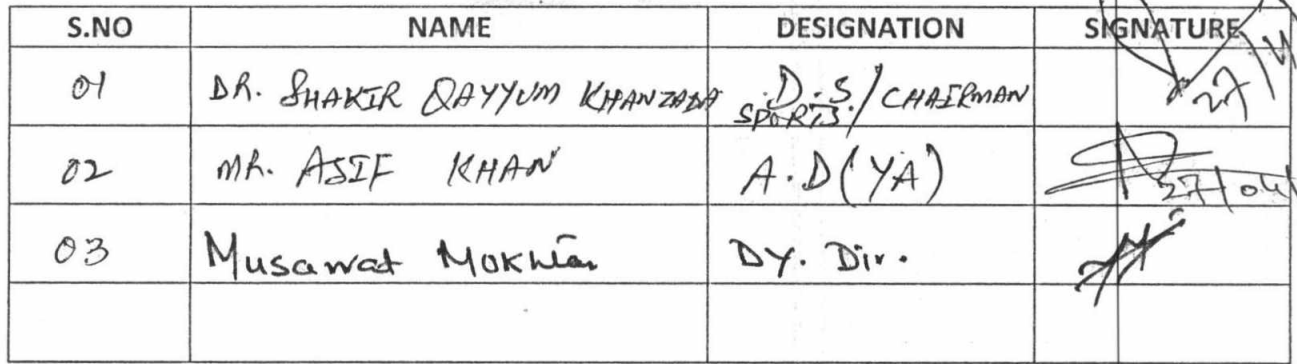 S.NO NAME DESIGNATION SIGNATURE
01 DR. SHAKIR QAYYUM KHANZADA D.S. SPORTS/CHAIRMAN 27/4
02 MR. ASIF KHAN A.D(YA) 27/04
03 Musawat Mokhtar DY. Dir.